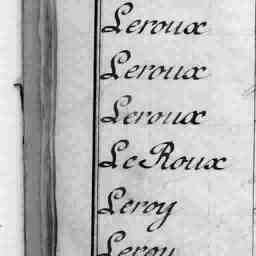 Leroux
Leroux
Leroux
Le Roux
Leroy
Leroy